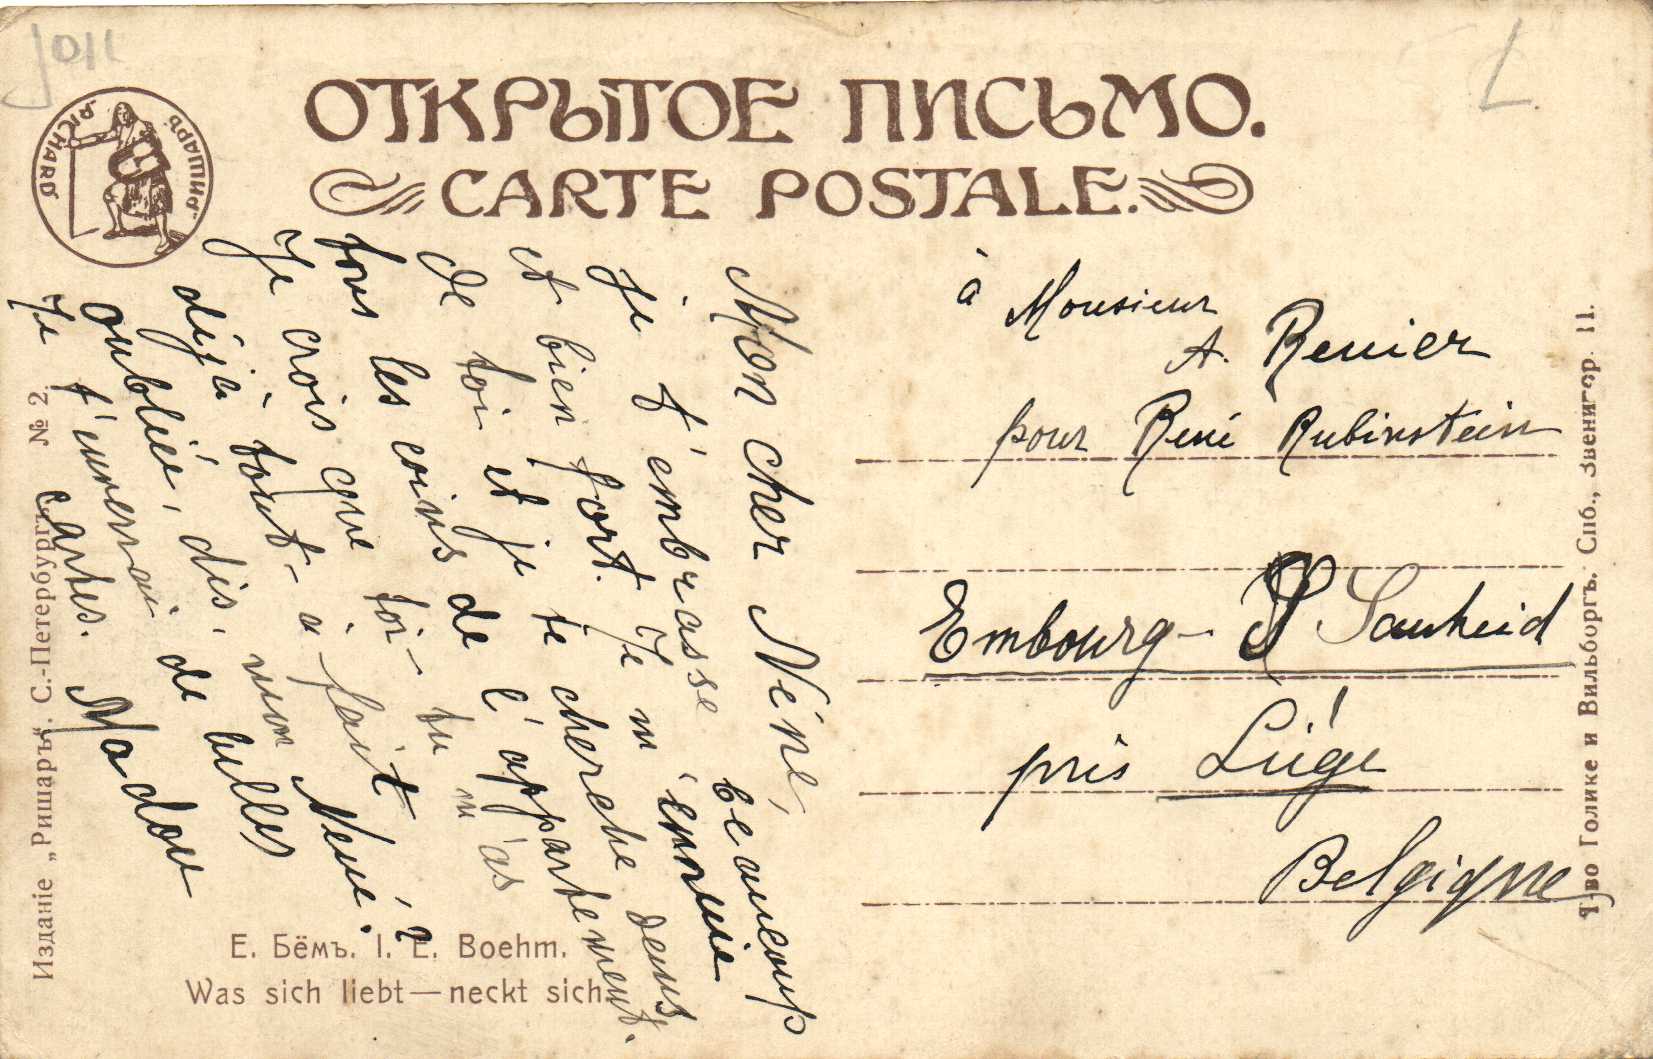 J011
L
ОТКРЫТОЕ ПИСЬМО.
CARTE POSTALE.
RICHARD
РИШАРЪ
Mon cher Néné,
Je t'embrasse beaucoup
et bien fort. Je m'ennuie
de toi et je te cherche dans
tous les coins de l'appartement.
Je crois que toi - tu m'as
déjà tout-à-fait
oubliée, dis, mon Néné!?
Je t'enverrai de belles
cartes. Madou
à Monsieur
A. Renier
pour René Rubinstein
Embourg - Sauheid
près Liége
Belgique
Е. Бёмъ. I. E. Boehm.
Was sich liebt — neckt sich.
Изданіе „Ришаръ“. С.-Петербургъ. № 2
Т-во Голике и Вильборгъ. Спб., Звенигор. 11.